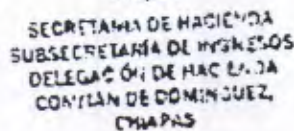 SECRETARIA DE HACIENDA
SUBSECRETARÍA DE INGRESOS
DELEGACIÓN DE HACIENDA
COMITÁN DE DOMINGUEZ,
CHIAPAS